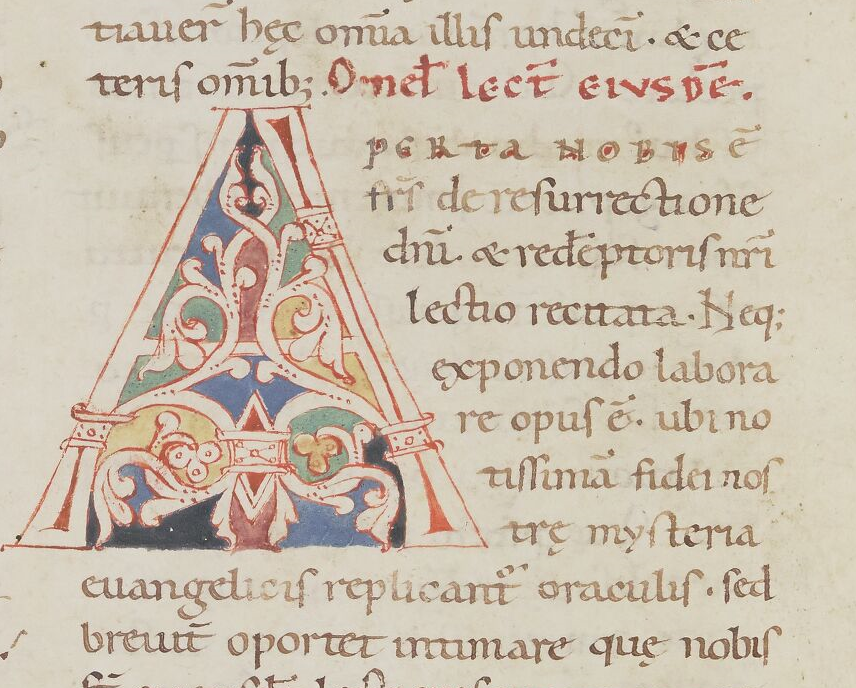 tiauer̄ hęc om̄ia illis undeci̅. & ce
teris om̅ib;. Omel̅ lect̅ eiusde̅.
A perta nobis ē
fr̅s de resurrectione
dn̅i. & rede̅ptoris nr̅i
lectio recitata. Neq;
exponendo labora
re opus ē. ubi no
tissimā fidei nos
trę mysteria
euangelicis replicant̅ oraculis. sed
breuit̅ oportet intimare quę nobis